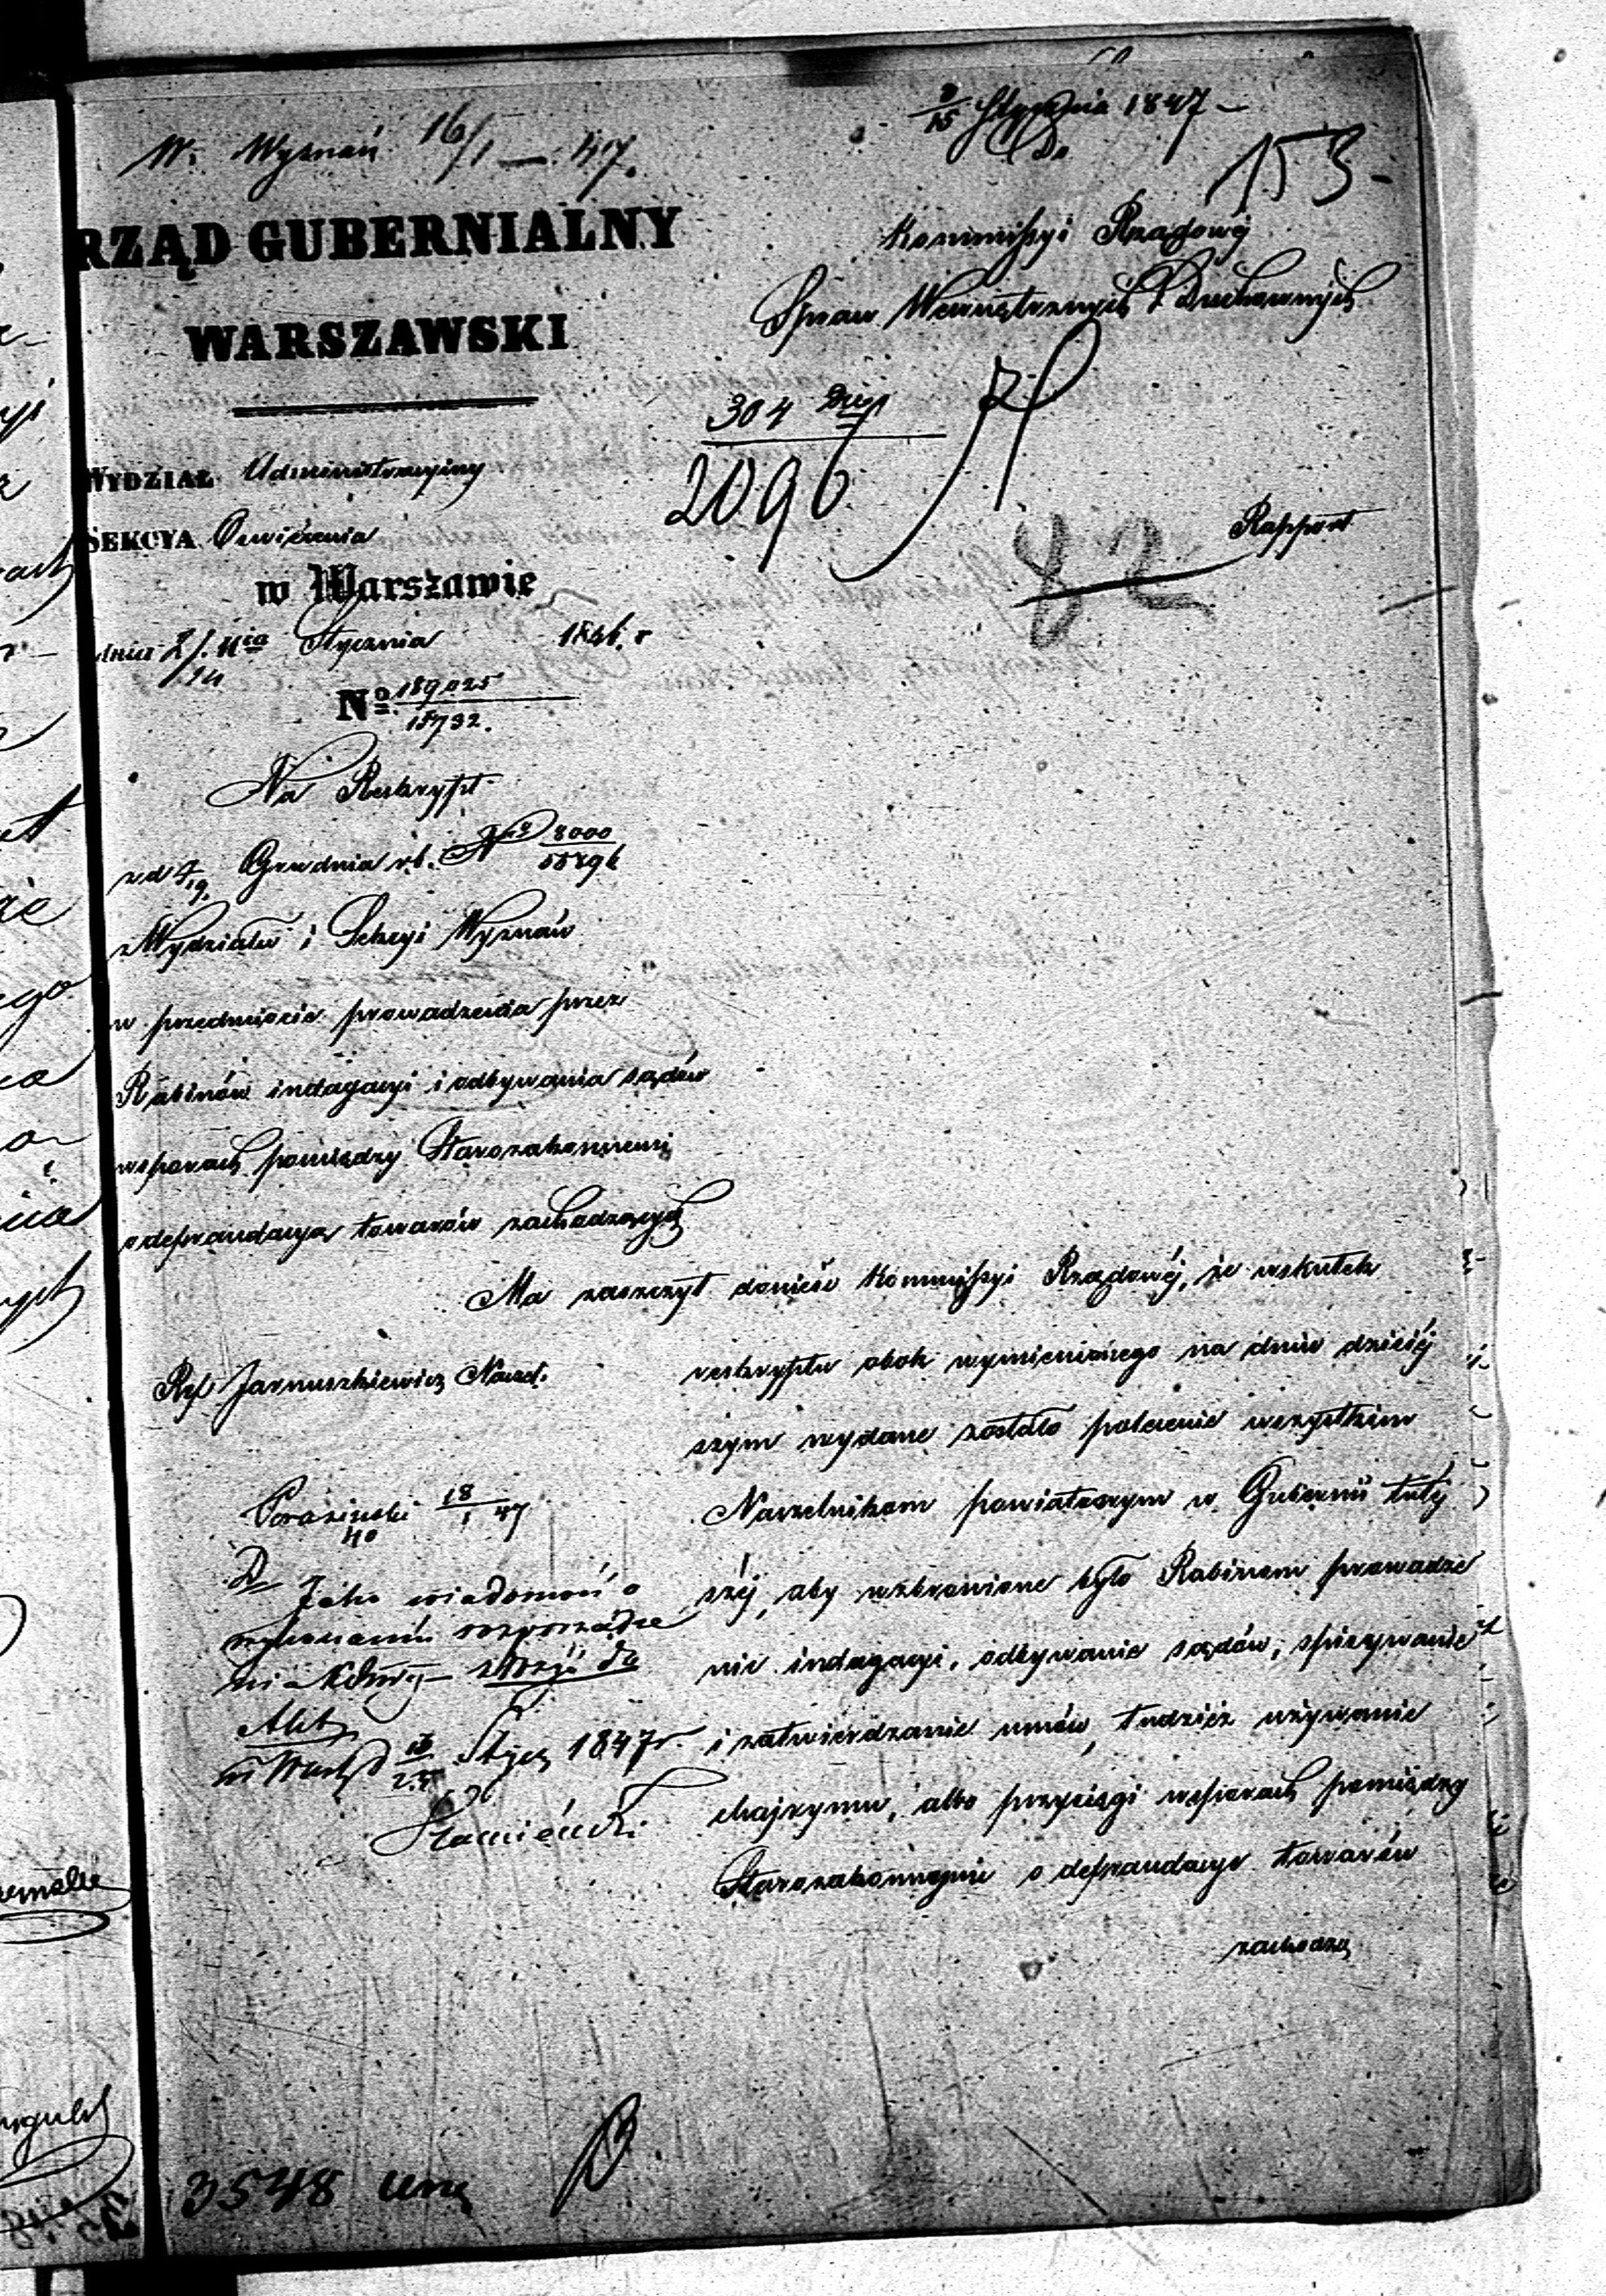 W. Wyznań 16/1 — 47.
3/15 Stycznia 1847 —
Do
153 -
RZĄD GUBERNIALNY
WARSZAWSKI
Kommissyi Rządowéj
Spraw Wewnętrznych i Duchownych
304
2096
82
Rapport
WYDZIAŁ Administracyiny
SEKCYA Oświécenia
w Warszawie
dnia 2/14 Stycznia 1846. r
No 189025/15732.
Na Reskrypt
z d 7/19. Grudnia r.b. No 8000
z Wydziału i Sekcyi Wyznań
w przedmiocie prowadzenia przez
Rabinów indagacyi i odbywania sądów
w sporach pomiędzy Starozakonnemi
o defraudacyą towarów zachodzących
Ma zaszczyt donieść Kommissyi Rządowéj, że wskutek
reskryptu obok wymienionego na dniu dzisiéj
szym wydane zostało polecenie wszystkim
Naczelnikom powiatowym w Gubernii tutéj
széj, aby wzbronione było Rabinom prowadze
nie indagacyi, odbywanie sądów, spisywanie
i zatwierdzanie umów, tudzież używanie
chajrymu, albo przysięgi w sporach pomiędzy
Starozakonnymi o defraudacye towarów
zachodzą
Ref Jarnuszkiewicz Nacz.
18/1 47
D Jako wiadomość o
wykonaniu rozporządze
nia złożyć do
Akt
Stycz 1847 r.
3548